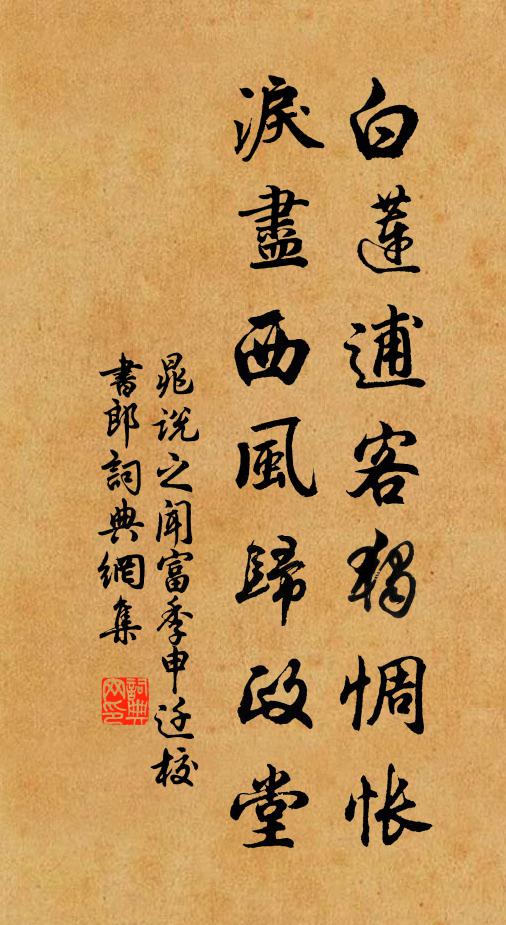 白蓮逋客獨惆悵
淚盡西風歸政堂
晁說之聞富季申迁校
書郎詞典網集
詞典
网印